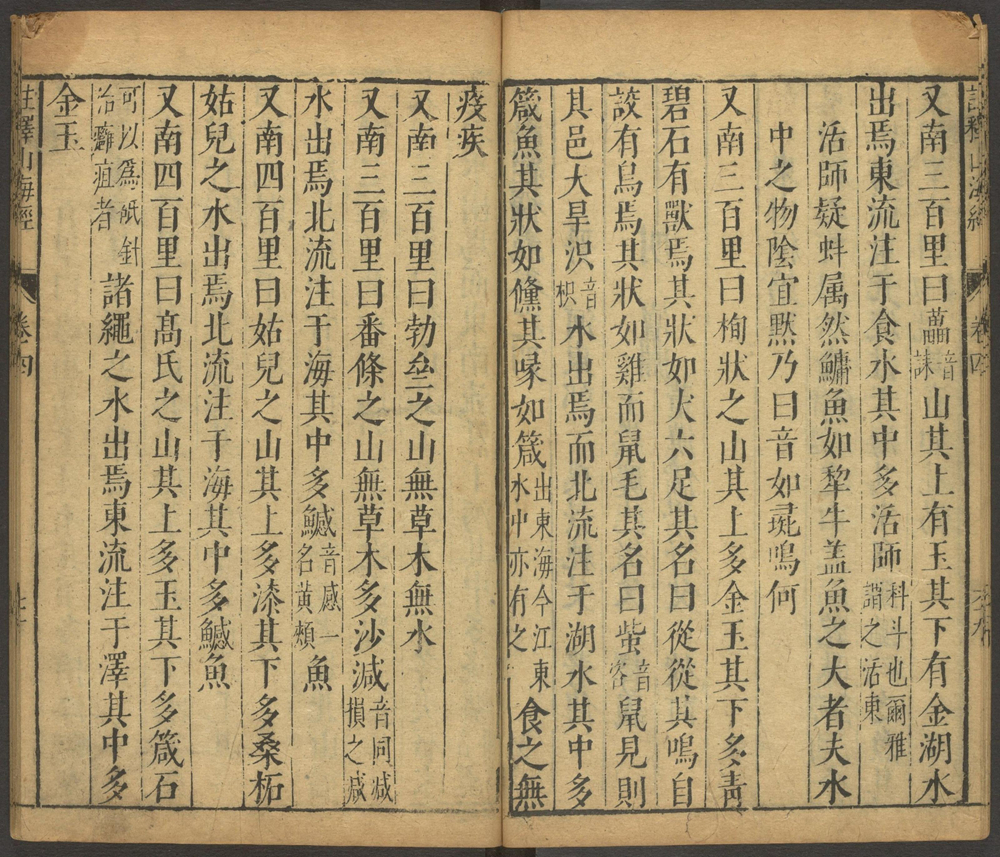 又南三百里曰藟音誄山其上有玉其下有金湖水
出焉東流注于食水其中多活師科斗也爾雅謂之活東
活師疑蚌属然鱅魚如犂牛盖魚之大者夫水
中之物陰宜黙乃曰音如彘鳴何
又南三百里曰栒狀之山其上多金玉其下多青
碧石有獸焉其狀如犬六足其名曰從從其鳴自
詨有鳥焉其狀如雞而鼠毛其名曰蚩音咨鼠見則
其邑大旱沢音枳水出焉而北流注于湖水其中多
箴魚其狀如儵其喙如箴出東海今江東水中亦有之食之無
疫疾
又南三百里曰勃亝之山無草木無水
又南三百里曰番條之山無草木多沙減音同減損之减
水出焉北流注于海其中多鱤音感一名黃頰魚
又南四百里曰姑兒之山其上多漆其下多桑柘
姑兒之水出焉北流注于海其中多鱤魚
又南四百里曰高氏之山其上多玉其下多箴石
可以爲砥針治癰疽者諸繩之水出焉東流注于澤其中多
金玉
註釋山海經 卷四